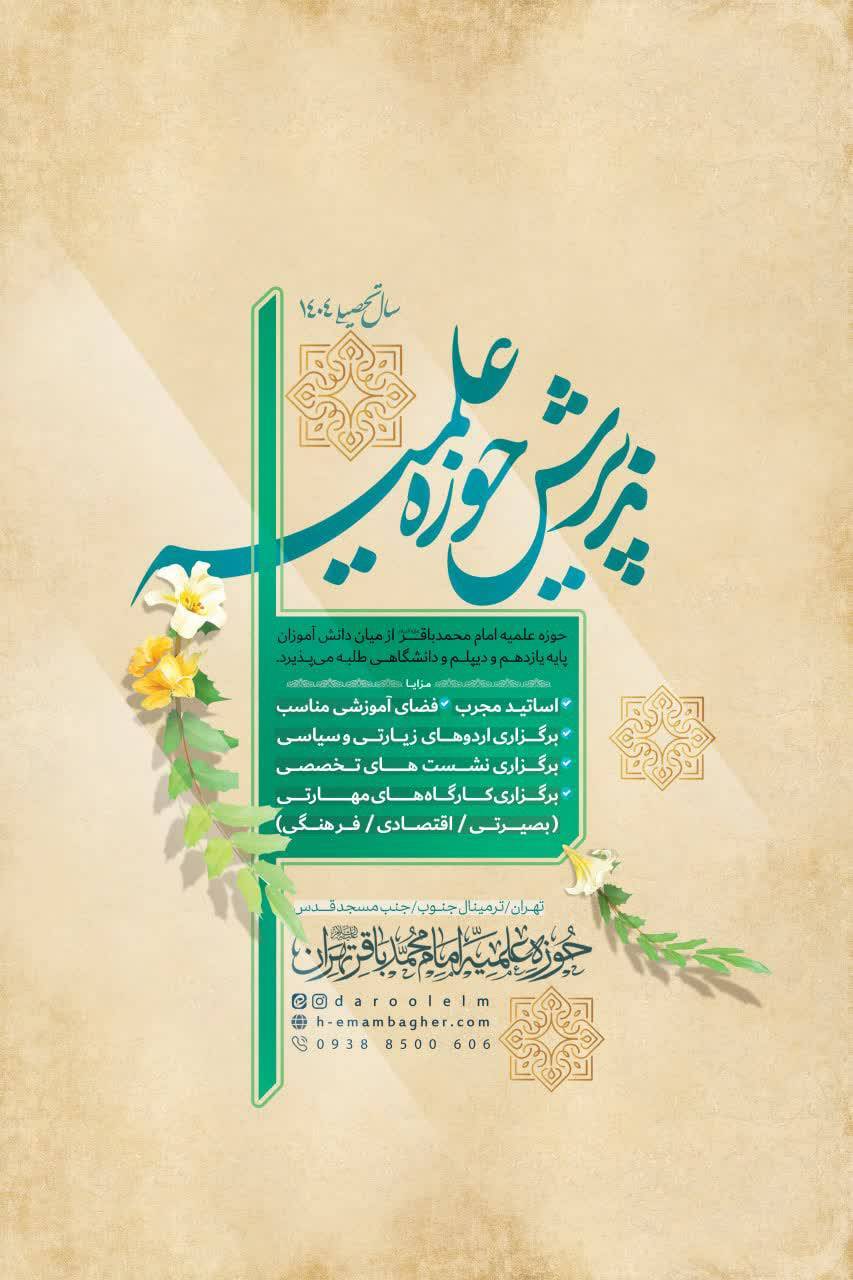 سال تحصیلی ۱۴۰۴
پذیرش حوزه علمیه
حوزه علمیه امام محمدباقر علیه‌السلام از میان دانش آموزان
پایه یازدهم و دیپلم و دانشگاهی طلبه می‌پذیرد.
مزایا
اساتید مجرب فضای آموزشی مناسب
برگزاری اردوهای زیارتی و سیاسی
برگزاری نشست های تخصصی
برگزاری کارگاه‌های مهارتی
(بصیرتی / اقتصادی / فرهنگی)
تهران/ترمینال جنوب/جنب مسجد قدس
حوزه علمیه امام محمد باقر علیه‌السلام تهران
daroolelm
h-emambagher.com
0938 8500 606